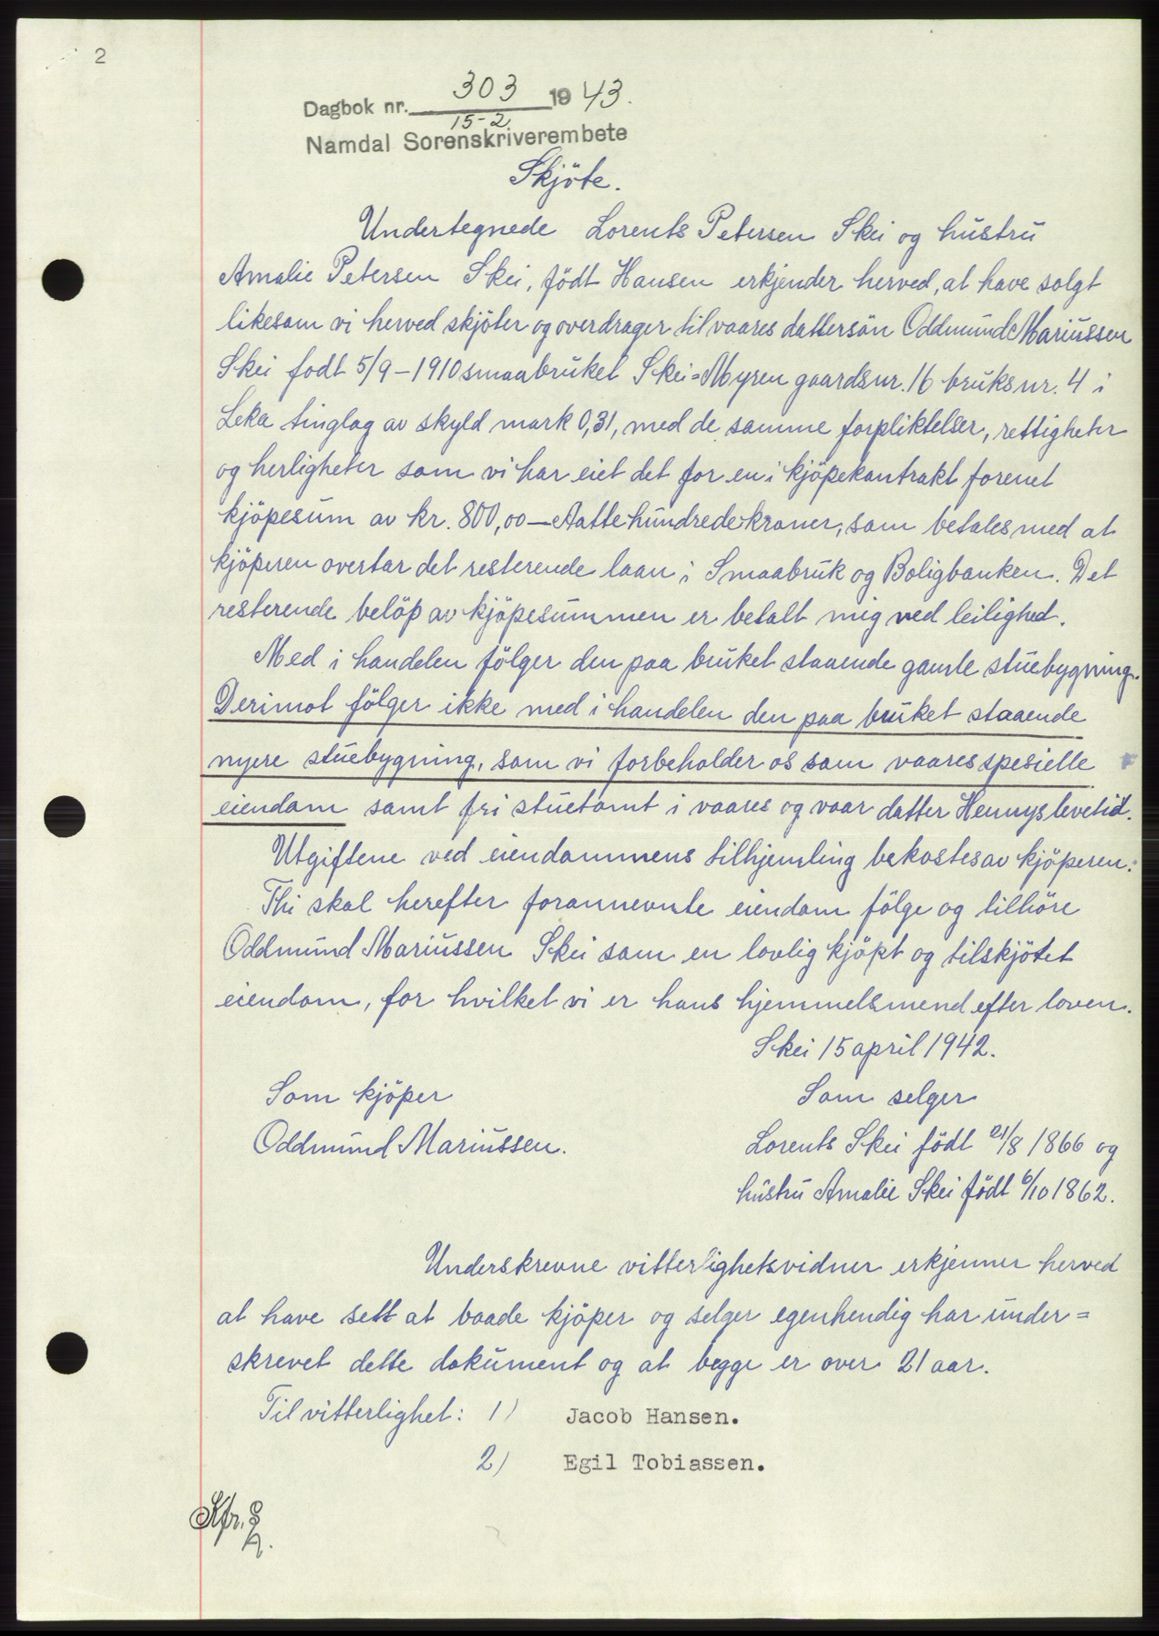 2
Dagbok nr. 303 1943.
15-2
Namdal Sorenskriverembete
Skjöte.
Undertegnede Lorents Petersen Skei og hustru
Amalie Petersen Skei, födt Hansen erkjender herved, at have solgt
likesom vi herved skjöter og overdrager til vaares dattersön Oddmund Mariussen
Skei fodt 5/9-1910 smaabruket Skei=Myren gaardsnr. 16 bruksnr. 4 i
Leka tinglag av skyld mark 0,31, med de samme forpliktelser, rettigheter
og herligheter som vi har eiet det for en i kjöpekontrakt forenet
kjöpesum av kr. 800,00 — Aattehundredekroner, som betales med at
kjöperen overtar det resterende laan i Smaabruk og Boligbanken. Det
resterende belöp av kjöpesummen er betalt mig ved leilighed.
Med i handelen fölger den paa bruket staaende gamle stuebygning.
Derimot fölger ikke med i handelen den paa bruket staaende
nyere stuebygning, som vi forbeholder os som vaares spesielle
eiendom samt fri stuetomt i vaares og vaar datter Hennys levetid.
Utgiftene ved eiendommens tilhjemling bekostes av kjöperen.
Thi skal herefter forannevnte eiendom fölge og tilhöre
Oddmund Mariussen Skei som en lovlig kjöpt og tilskjötet
eiendom, for hvilket vi er hans hjemmelsmend efter loven.
Skei 15 april 1942.
Som kjöper Som selger
Oddmund Mariussen. Lorents Skei födt 21/8 1866 og
hustru Amalie Skei födt 6/10 1862.
Underskrevne vitterlighetsvidner erkjenner herved
at have sett at baade kjöper og selger egenhendig har under=
skrevet dette dokument og at begge er over 21 aar.
Til vitterlighet: 1) Jacob Hansen.
2) Egil Tobiassen.
Kfr.